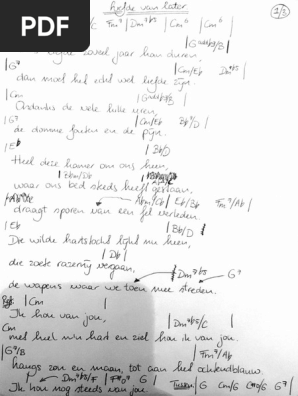 PDF
Liefde van later
1/2
C Fm⁷ | Dm⁷ᵇ⁵ | Cm⁶ | Cm⁶ |
| Gadd⁹/B |
zoveel jaar kan duren,
| G⁷ | Cm/Eb Dm⁷ᵇ⁵ |
dan moet het echt wel liefde zijn.
| Cm | Gadd⁹/B |
Ondanks de vele lülle uren,
| G⁷ | Cm/Eb Bb⁹/D |
de domme fouten en de pijn.
| Eb | Bb/D
Heel deze kamer om ons heen,
| Bbm/Db
waar ons bed steeds heeft gestaan,
| Abm/Cb | Eb/Bb Fm⁷/Ab |
draagt sporen van een fel verleden.
| Eb | Bb/D
Die wilde hartstocht lijkt nu heen,
| Db |
die zoete razernij vergaan,
| Dm⁷ᵇ⁵ G⁹
de wapens waar we toen mee streden.
| Cm |
Ik hou van jou,
Cm | Dm⁷ᵇ⁵/C |
met heel m'n hart en ziel hou ik van jou.
| G⁹/B | Fm⁷/Ab |
langs zon en maan, tot aan het ochtendblauw.
| Dm⁷ᵇ⁵/F | F#°⁷ G |
Ik hou nog steeds van jou
Tussen: | G Cm/G C#°/G G⁷ |